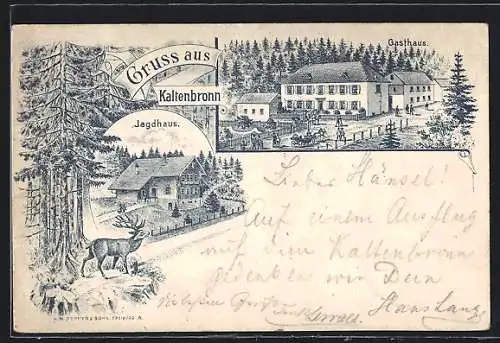 Gruss aus
Kaltenbronn
Gasthaus.
Jagdhaus.
Liebes Hänsel!
Auf einem Ausflug
auf den Kaltenbronn
gedenken wir Dein
Hans Lang